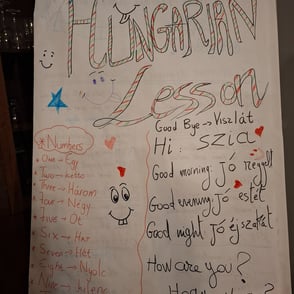 HUNGARIAN
Lesson
Numbers
One → Egy
Two → kettő
Three → Három
four → Négy
five → Öt
Six → Hat
Seven → Hét
Eight → Nyolc
Nine → kilenc
Good Bye → Viszlát
Hi: SZIA
Good morning: jó reggelt
Good evening: jó estét
Good night jó éjszakát
How are you?